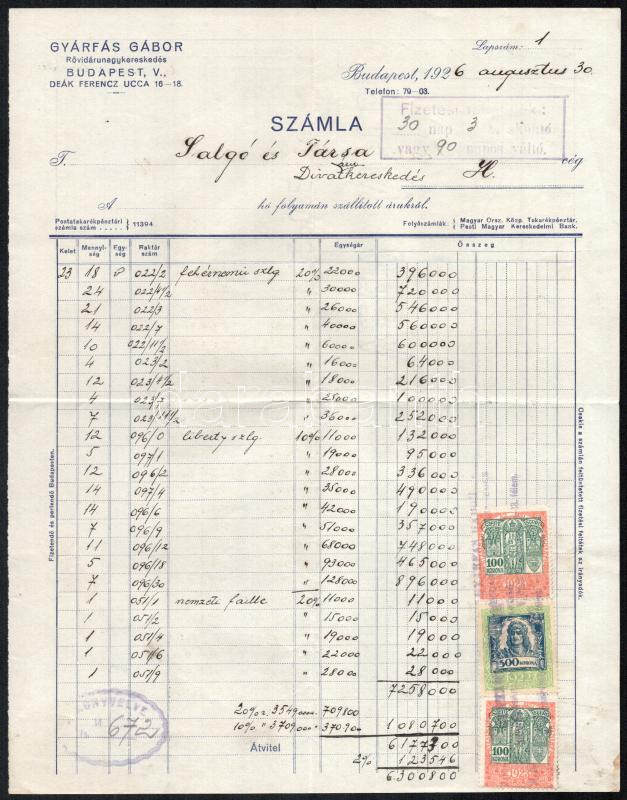 GYÁRFÁS GÁBOR
Rövidárunagykereskedés
BUDAPEST, V.,
DEÁK FERENC UCCA 16-18.
Lapszám: 1
Budapest, 1926 augusztus 30.
Telefon: 79-03.
SZÁMLA
30 nap 3
vagy 90 napos váltó.
T. Salgó és Társa cég
Divatkereskedés H.
A hó folyamán szállított árukról.
Postatakarékpénztári számla szám 11394
Folyószámlák: Magyar Orsz. Közp. Takarékpénztár,
Pesti Magyar Kereskedelmi Bank.
Kelet Mennyiség Egység Raktár szám Egységár Összeg
23 18 022/2 fehérnemü szlg 20% 22000 396000
24 " 30000 720000
21 022/3 " 26000 546000
14 022/7 " 40000 560000
10 " 60000 600000
4 023/2 " 16000 64000
12 " 18000 216000
4 " 25000 100000
7 " 36000 252000
12 096/0 liberty szlg. 10% 11000 132000
5 097/1 " 19000 95000
12 096/2 " 28000 336000
14 097/4 " 35000 490000
14 096/6 " 42000
7 096/9 " 51000 357000
11 096/12 " 68000 748000
5 096/18 " 93000 465000
7 096/30 " 128000 896000
1 051/1 nemzeti faille 20% 11000 11000
1 05/2 " 15000 15000
1 051/4 " 19000 19000
1 051/6 " 22000 22000
1 051/9 " 28000 28000
7258000
20% 709800
10% " 3709000 370900 1080700
Átvitel 6177300
2% 123546
6300800
Fizetendő és perlendő Budapesten.
Csakis a számlán feltüntetett fizetési feltételek az irányadók.
KÖNYVELVE
672
100 KORONA
500 KORONA
100 KORONA